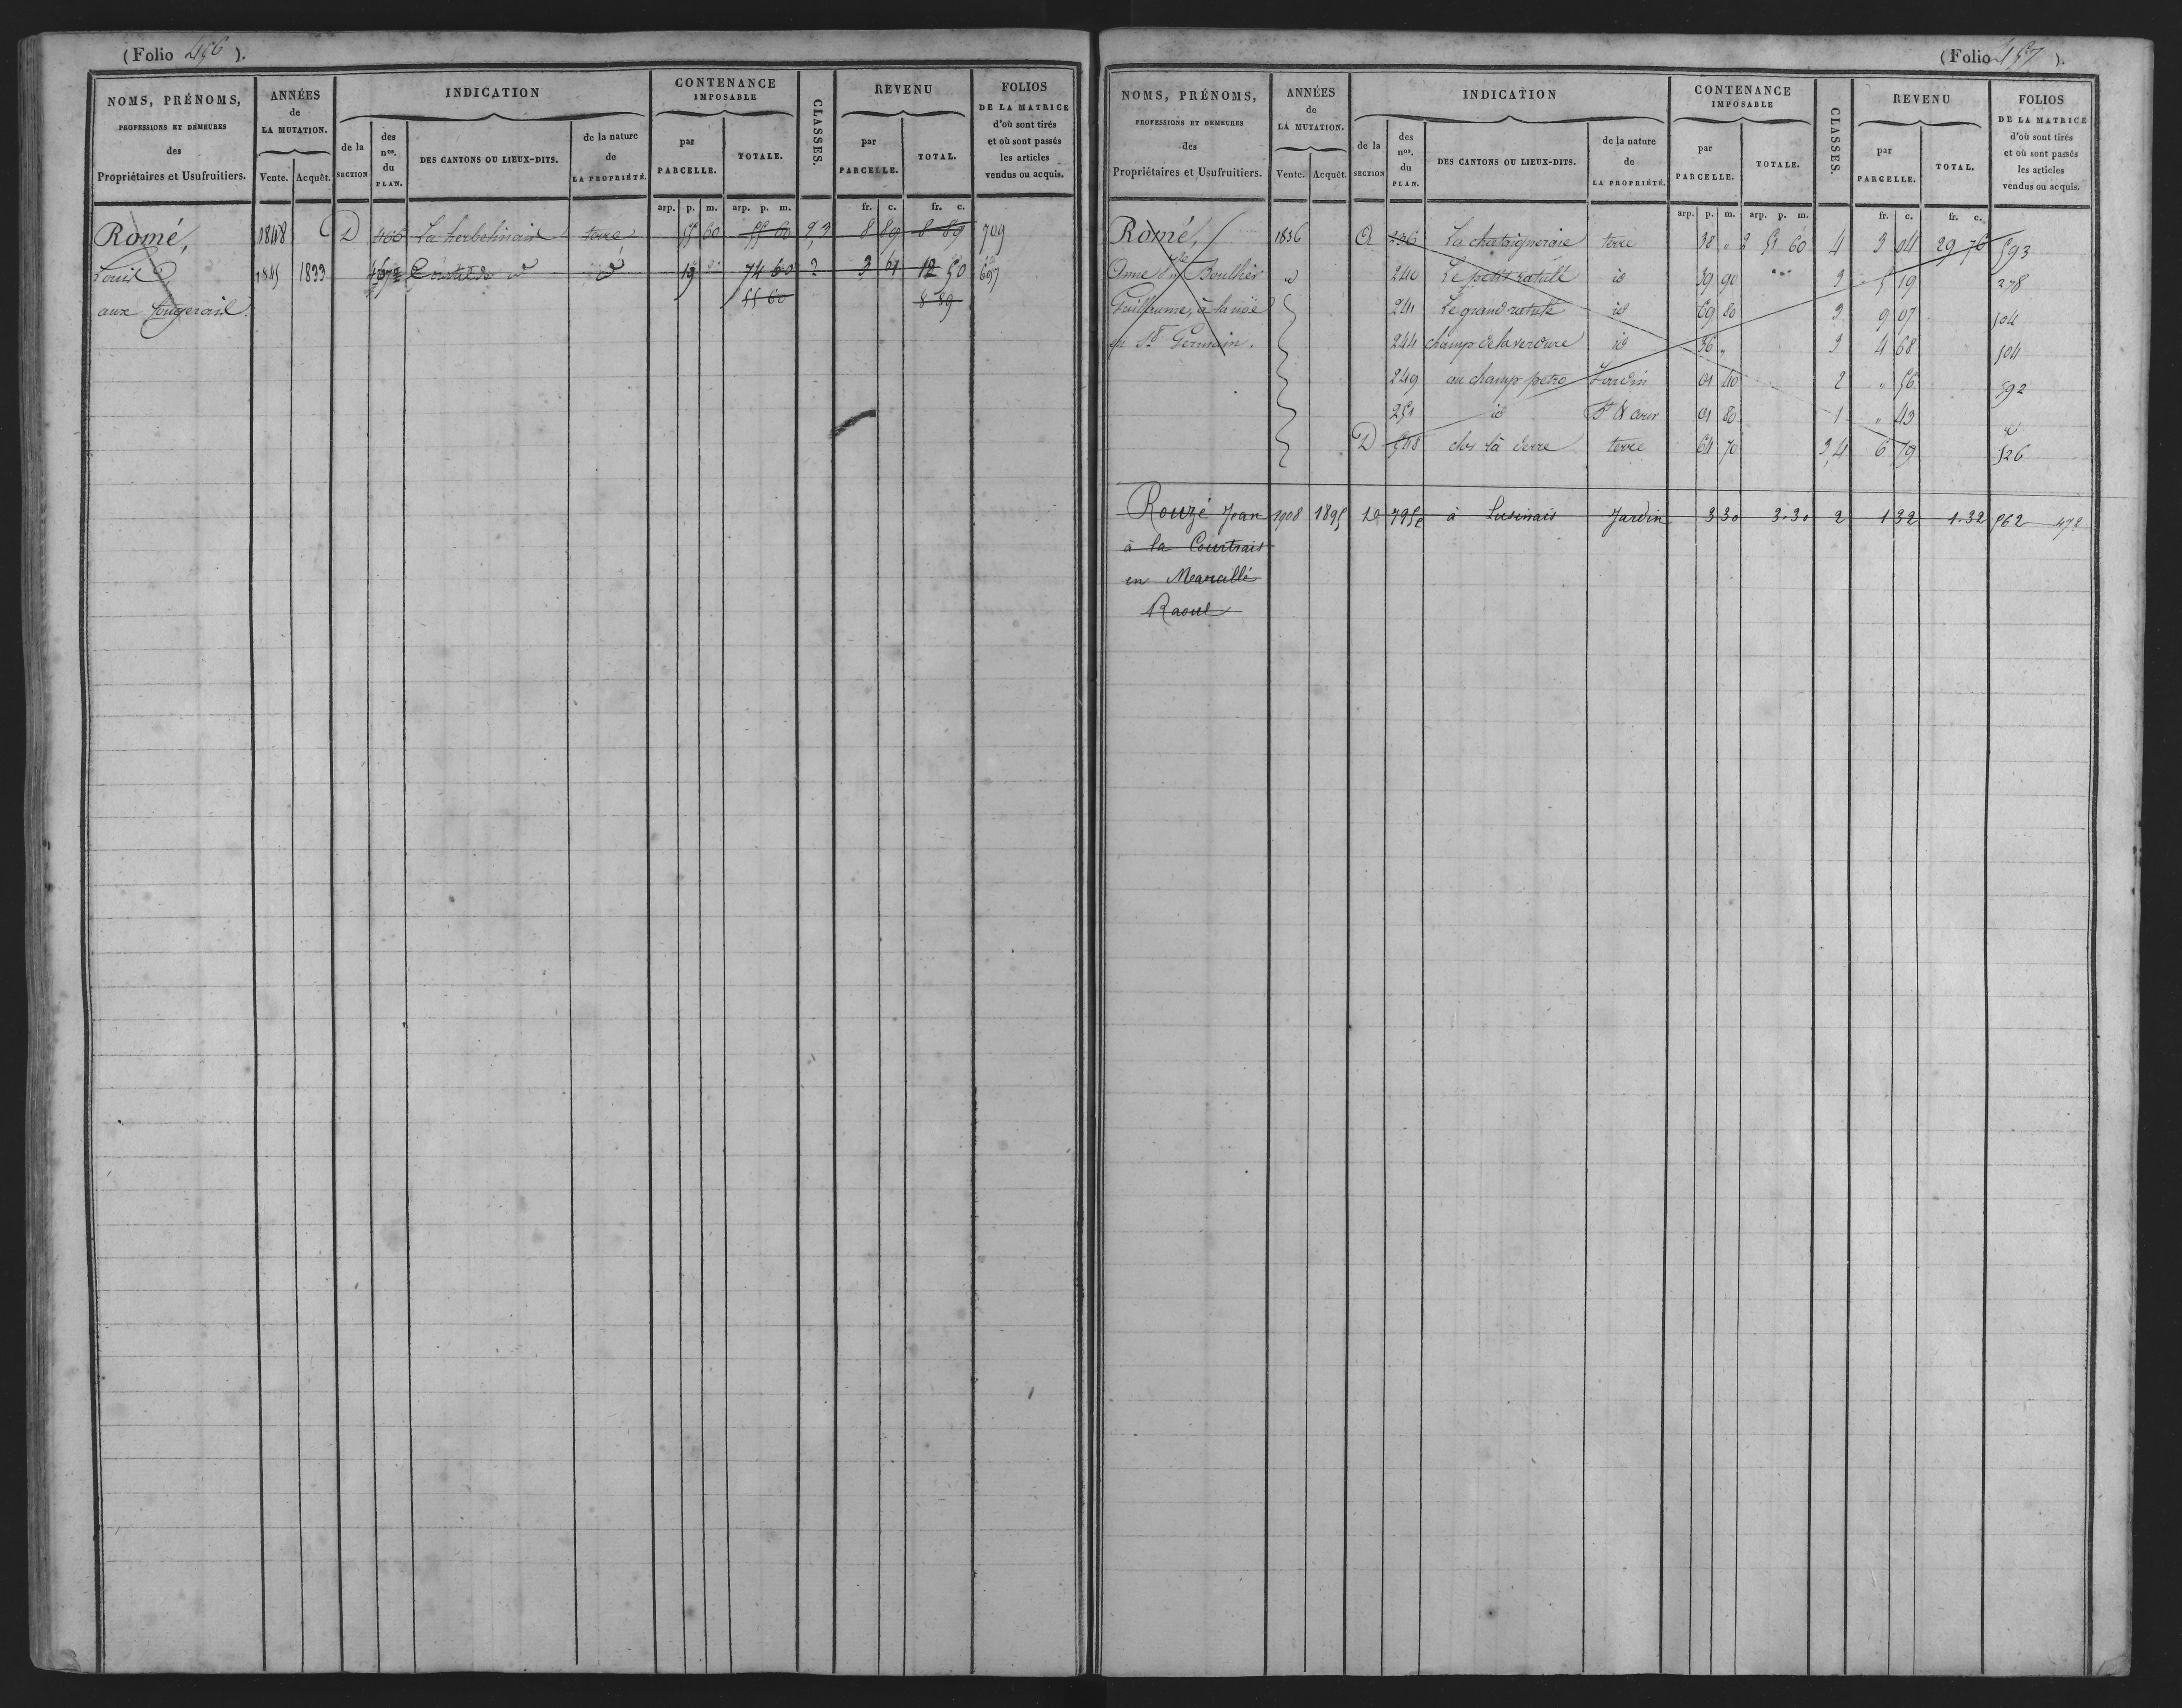 (Folio 456 ).
NOMS, PRÉNOMS,
PROFESSIONS ET DEMEURES
des
Propriétaires et Usufruitiers.
ANNÉES
de
LA MUTATION.
Vente. Acquêt.
INDICATION
de la
SECTION
des
nos.
du
PLAN.
DES CANTONS OU LIEUX-DITS.
de la nature
de
LA PROPRIÉTÉ.
CONTENANCE
IMPOSABLE
par
PARCELLE.
TOTALE.
CLASSES.
REVENU
par
PARCELLE.
TOTAL.
FOLIOS
DE LA MATRICE
d'où sont tirés
et où sont passés
les articles
vendus ou acquis.
arp. p. m. arp. p. m. fr. c. fr. c.
Romé, 1848 D 466 La herbetinais terre 55 60 55 60 2,3 8 89 8 89 709
Louis 1845 1833 id 19 74 60 2 3 61 12 50 697
aux fougerais. 55 60 8 89
(Folio 457 ).
NOMS, PRÉNOMS,
PROFESSIONS ET DEMEURES
des
Propriétaires et Usufruitiers.
ANNÉES
de
LA MUTATION.
Vente. Acquêt.
INDICATION
de la
SECTION
des
nos.
du
PLAN.
DES CANTONS OU LIEUX-DITS.
de la nature
de
LA PROPRIÉTÉ.
CONTENANCE
IMPOSABLE
par
PARCELLE.
TOTALE.
CLASSES.
REVENU
par
PARCELLE.
TOTAL.
FOLIOS
DE LA MATRICE
d'où sont tirés
et où sont passés
les articles
vendus ou acquis.
arp. p. m. arp. p. m. fr. c. fr. c.
Romé, 1836 A 236 La chataigneraie terre 38 " 2 51 60 4 3 04 29 76 593
Anne Vve Bouthier id 240 Le petit ratulé id 39 90 3 5 19 278
Guillaume, à la noë 241 Le grand ratulé id 69 80 3 9 07 504
en St Germain. 244 champ de la verdure id 36 " 3 4 68 504
249 au champ petro Jardin 01 40 2 " 56 592
251 id Bt & cour 01 80 1 " 43 id
D 548 clos là derre terre 64 70 3,4 6 79 526
Rouzé Jean 1908 1895 D 795 à Lusinais Jardin 3 30 3.30 2 1 32 1.32 562 472
à la Courtrais
en Marcillé
Raoul